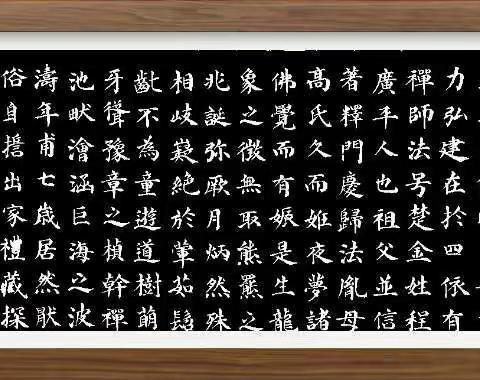 力弘建在於四依有
禪師法号楚金姓程
廣平人也祖父並信
著釋門慶歸法胤母
高氏久而姬夜夢諸
佛覺而有娠是生龍
象之徵無取熊羆之
兆誕弥厥月炳然殊
相岐嶷絕於葷茹髫
齔不為童遊道樹萌
牙聳豫章之楨幹禪
池畎澮涵巨海之波
濤年甫七歲居然猒
俗自誓出家禮藏探